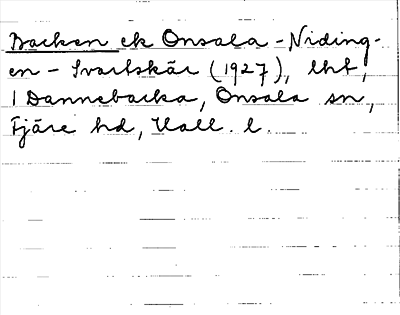 Backen ek Onsala - Niding-
en - Svartskär (1927), lht,
i Dannebacka, Onsala sn,
Fjäre hd, Hall. l.